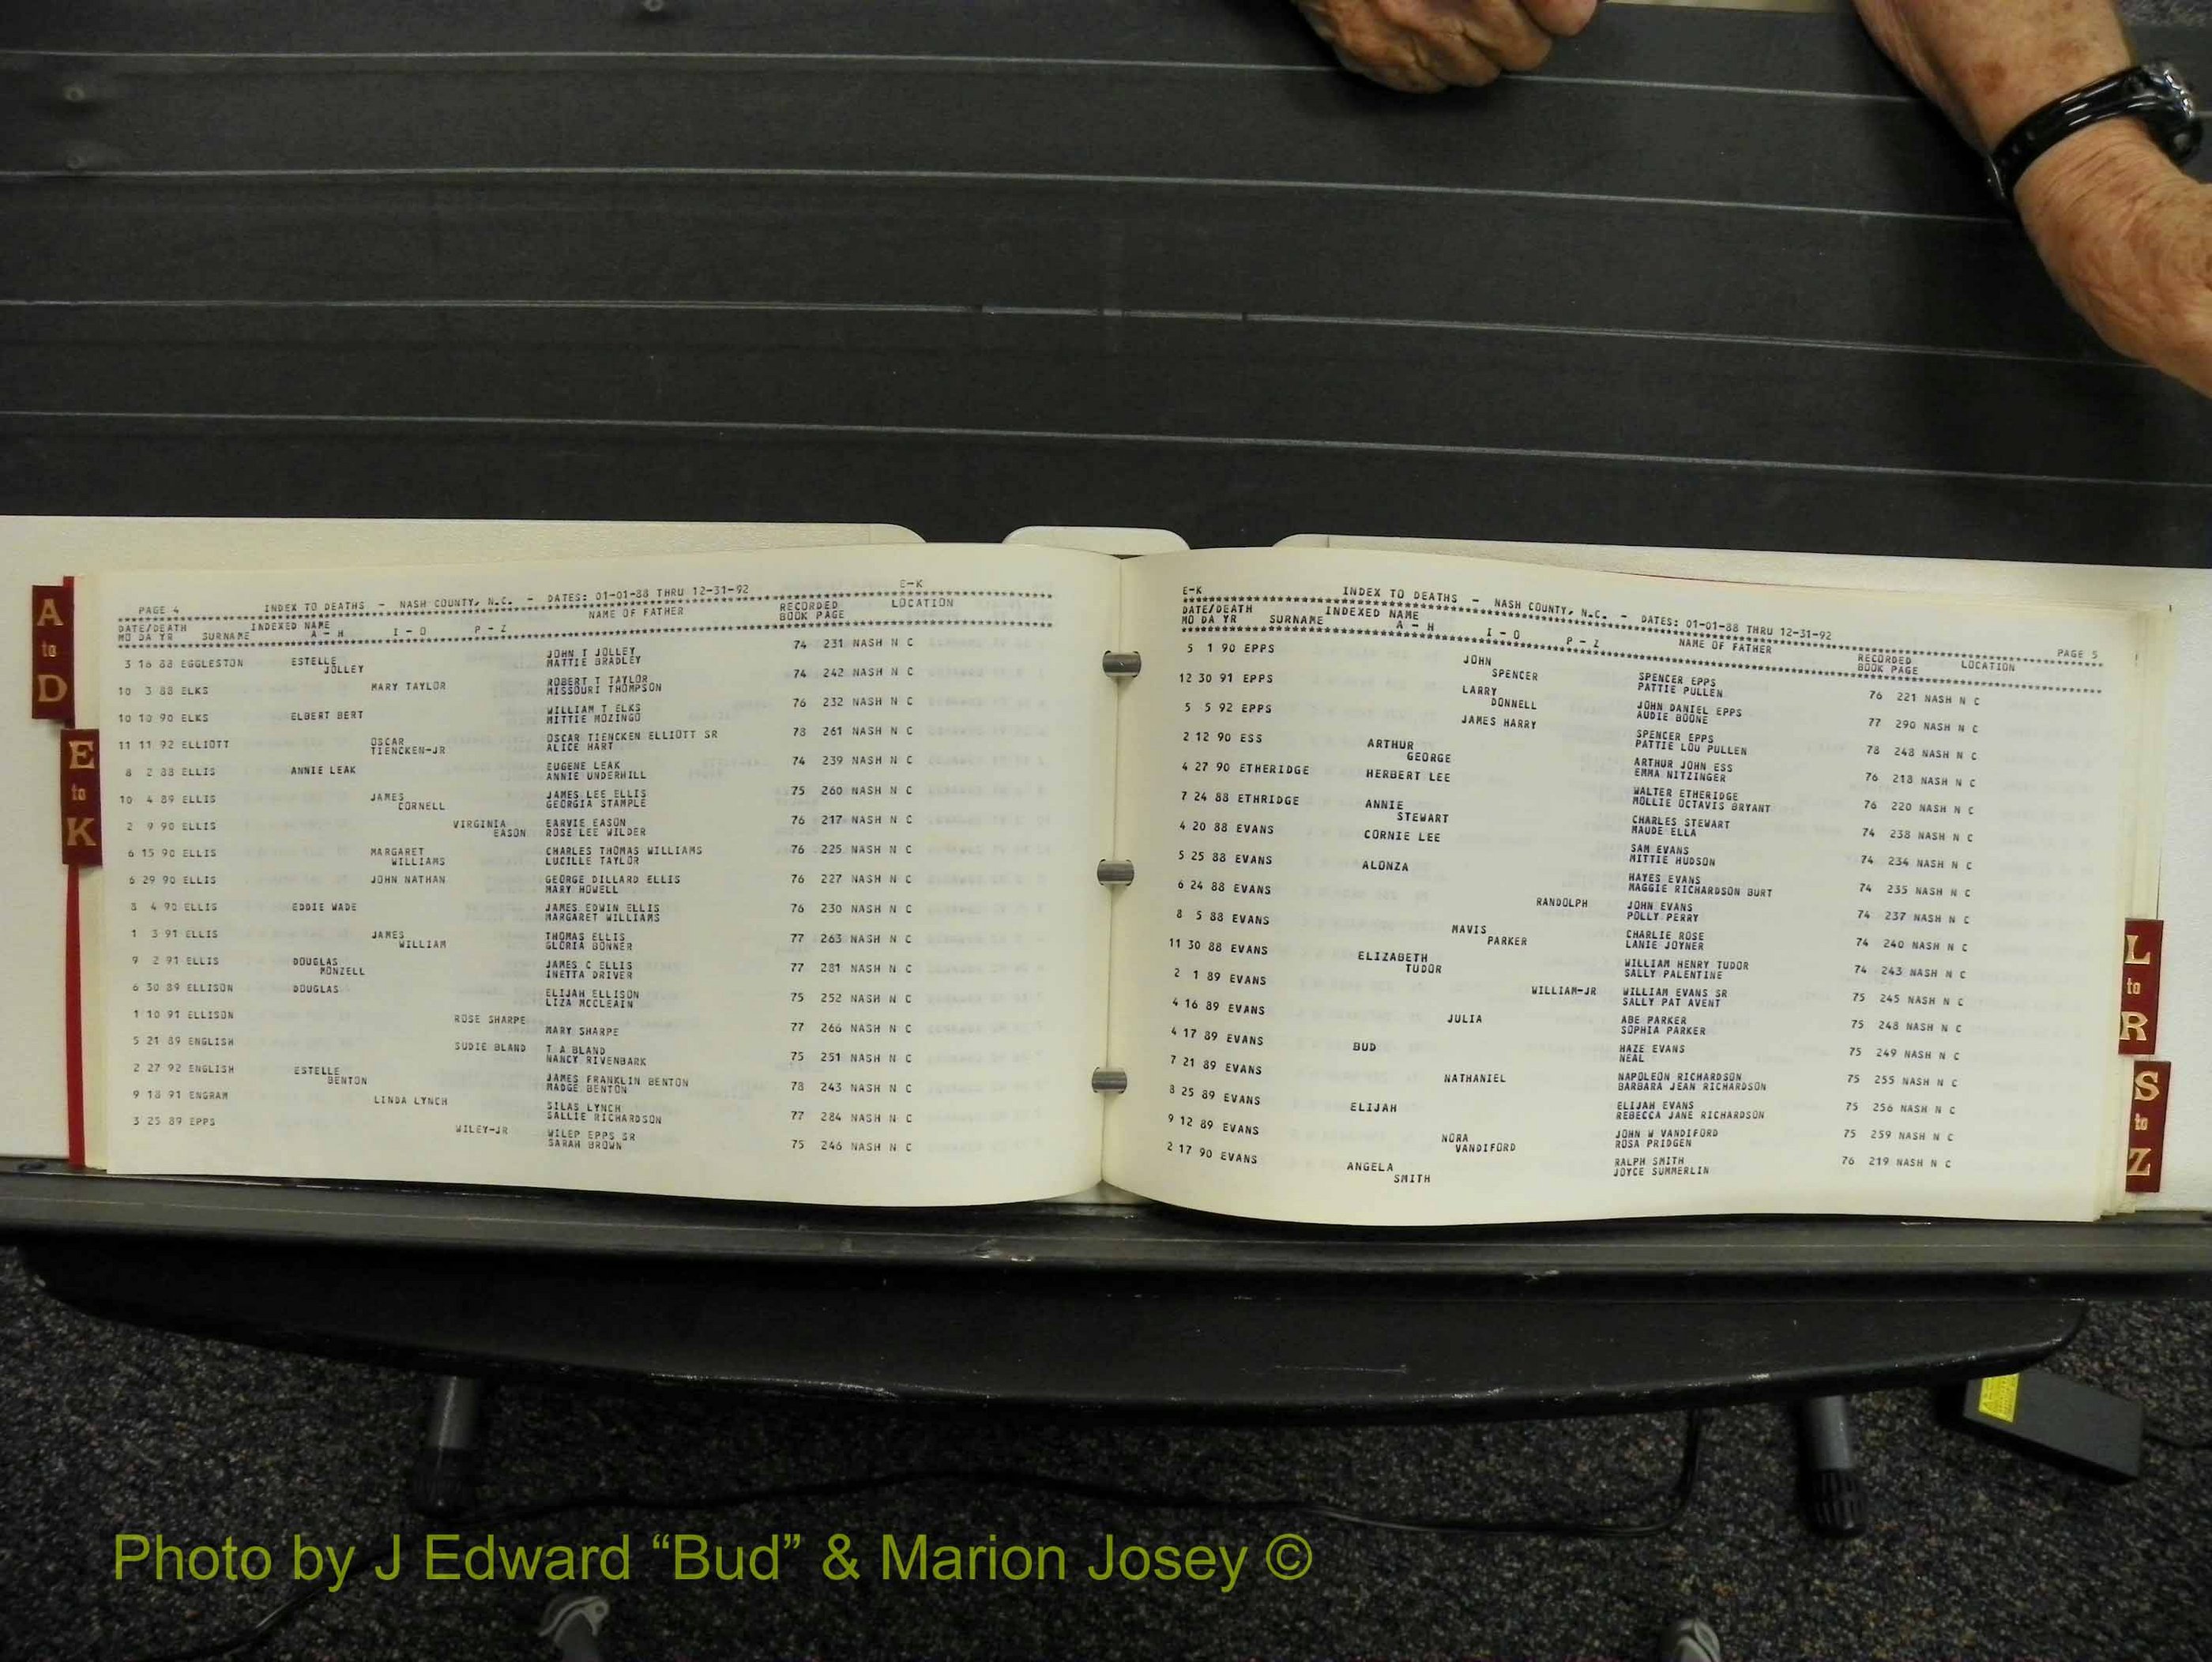 A
to
D
E
to
K
PAGE 4 INDEX TO DEATHS - NASH COUNTY, N.C. - DATES: 01-01-88 THRU 12-31-92 E-K
DATE/DEATH INDEXED NAME NAME OF FATHER RECORDED LOCATION
MO DA YR SURNAME A - H I - O P - Z BOOK PAGE
3 16 88 EGGLESTON ESTELLE JOHN T JOLLEY 74 231 NASH N C
JOLLEY MATTIE BRADLEY
10 3 88 ELKS MARY TAYLOR ROBERT T TAYLOR 74 242 NASH N C
MISSOURI THOMPSON
10 10 90 ELKS ELBERT BERT WILLIAM T ELKS 76 232 NASH N C
MITTIE MOZINGO
11 11 92 ELLIOTT OSCAR OSCAR TIENCKEN ELLIOTT SR 78 261 NASH N C
TIENCKEN-JR ALICE HART
8 2 88 ELLIS ANNIE LEAK EUGENE LEAK 74 239 NASH N C
ANNIE UNDERHILL
10 4 89 ELLIS JAMES JAMES LEE ELLIS 75 260 NASH N C
CORNELL GEORGIA STAMPLE
2 9 90 ELLIS VIRGINIA EARVIE EASON 76 217 NASH N C
EASON ROSE LEE WILDER
6 15 90 ELLIS MARGARET CHARLES THOMAS WILLIAMS 76 225 NASH N C
WILLIAMS LUCILLE TAYLOR
6 29 90 ELLIS JOHN NATHAN GEORGE DILLARD ELLIS 76 227 NASH N C
MARY HOWELL
8 4 90 ELLIS EDDIE WADE JAMES EDWIN ELLIS 76 230 NASH N C
MARGARET WILLIAMS
1 3 91 ELLIS JAMES THOMAS ELLIS 77 263 NASH N C
WILLIAM GLORIA BONNER
9 2 91 ELLIS DOUGLAS JAMES C ELLIS 77 281 NASH N C
MONZELL INETTA DRIVER
6 30 89 ELLISON DOUGLAS ELIJAH ELLISON 75 252 NASH N C
LIZA MCCLEAIN
1 10 91 ELLISON ROSE SHARPE 77 266 NASH N C
MARY SHARPE
5 21 89 ENGLISH SUDIE BLAND T A BLAND 75 251 NASH N C
NANCY RIVENBARK
2 27 92 ENGLISH ESTELLE JAMES FRANKLIN BENTON 78 243 NASH N C
BENTON MADGE BENTON
9 18 91 ENGRAM LINDA LYNCH SILAS LYNCH 77 284 NASH N C
SALLIE RICHARDSON
3 25 89 EPPS WILEY-JR WILEP EPPS SR 75 246 NASH N C
SARAH BROWN
E-K INDEX TO DEATHS - NASH COUNTY, N.C. - DATES: 01-01-88 THRU 12-31-92 PAGE 5
DATE/DEATH INDEXED NAME NAME OF FATHER RECORDED LOCATION
MO DA YR SURNAME A - H I - O P - Z BOOK PAGE
5 1 90 EPPS JOHN SPENCER EPPS 76 221 NASH N C
SPENCER PATTIE PULLEN
12 30 91 EPPS LARRY JOHN DANIEL EPPS 77 290 NASH N C
DONNELL AUDIE BOONE
5 5 92 EPPS JAMES HARRY SPENCER EPPS 78 248 NASH N C
PATTIE LOU PULLEN
2 12 90 ESS ARTHUR ARTHUR JOHN ESS 76 218 NASH N C
GEORGE EMMA NITZINGER
4 27 90 ETHERIDGE HERBERT LEE WALTER ETHERIDGE 76 220 NASH N C
MOLLIE OCTAVIS BRYANT
7 24 88 ETHRIDGE ANNIE CHARLES STEWART 74 238 NASH N C
STEWART MAUDE ELLA
4 20 88 EVANS CORNIE LEE SAM EVANS 74 234 NASH N C
MITTIE HUDSON
5 25 88 EVANS ALONZA HAYES EVANS 74 235 NASH N C
MAGGIE RICHARDSON BURT
6 24 88 EVANS RANDOLPH JOHN EVANS 74 237 NASH N C
POLLY PERRY
8 5 88 EVANS MAVIS CHARLIE ROSE 74 240 NASH N C
PARKER LANIE JOYNER
11 30 88 EVANS ELIZABETH WILLIAM HENRY TUDOR 74 243 NASH N C
TUDOR SALLY PALENTINE
2 1 89 EVANS WILLIAM-JR WILLIAM EVANS SR 75 245 NASH N C
SALLY PAT AVENT
4 16 89 EVANS JULIA ABE PARKER 75 248 NASH N C
SOPHIA PARKER
4 17 89 EVANS BUD HAZE EVANS 75 249 NASH N C
NEAL
7 21 89 EVANS NATHANIEL NAPOLEON RICHARDSON 75 255 NASH N C
BARBARA JEAN RICHARDSON
8 25 89 EVANS ELIJAH ELIJAH EVANS 75 256 NASH N C
REBECCA JANE RICHARDSON
9 12 89 EVANS NORA JOHN W VANDIFORD 75 259 NASH N C
VANDIFORD ROSA PRIDGEN
2 17 90 EVANS ANGELA RALPH SMITH 76 219 NASH N C
SMITH JOYCE SUMMERLIN
L
to
R
S
to
Z
Photo by J Edward “Bud” & Marion Josey ©